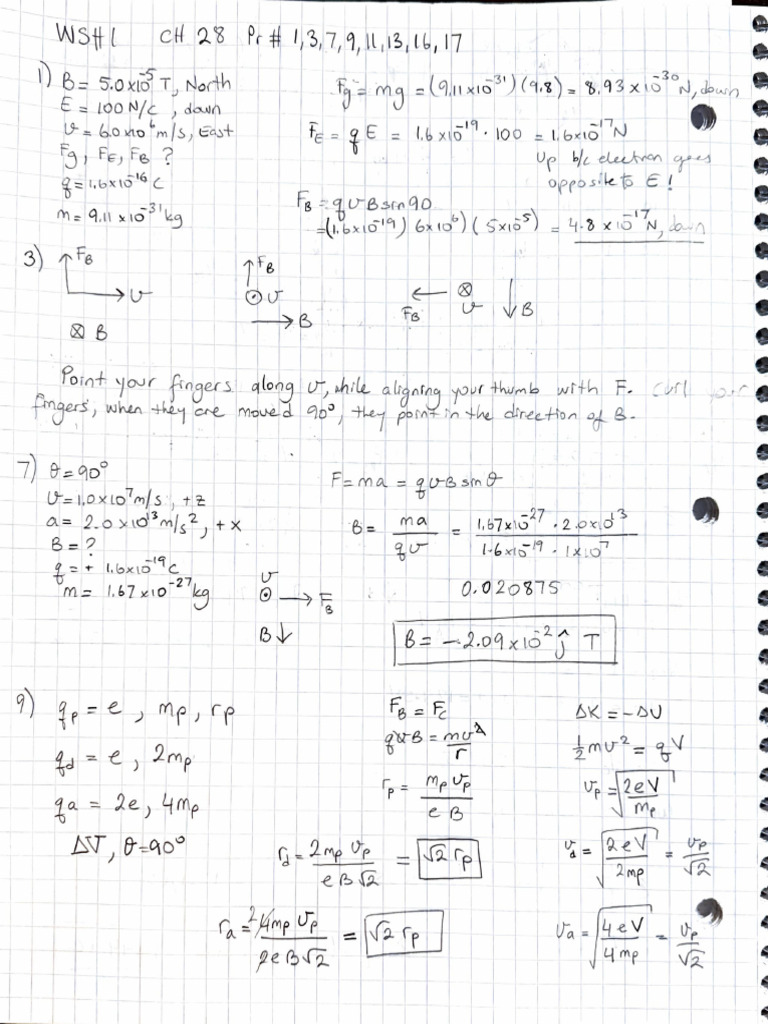 WSH 1 CH 28 Pr # 1,3,7,9,11,13,16,17
1) B = 5.0x10⁻⁵ T, North
E = 100 N/C, down
v = 6.0x10⁶ m/s, East
Fg, FE, FB ?
q = 1.6x10⁻¹⁶ C
m = 9.11 x10⁻³¹ kg
Fg = mg = (9.11x10⁻³¹)(9.8) = 8.93 x10⁻³⁰ N, down
FE = qE = 1.6x10⁻¹⁹ · 100 = 1.6x10⁻¹⁷ N
Up b/c electron goes
opposite to E!
FB = qvB sin90
=(1.6x10⁻¹⁹) 6x10⁶) (5x10⁻⁵) = 4.8 x10⁻¹⁷ N, down
3) FB
v
⊗ B
FB
⊙ v
B
FB
⊗
v
B
Point your fingers along v, while aligning your thumb with F. curl your
fingers, when they are moved 90°, they point in the direction of B.
7) θ = 90°
v = 1.0x10⁷ m/s, +z
a = 2.0 x10¹³ m/s², +x
B = ?
q = + 1.6x10⁻¹⁹ C
m = 1.67 x10⁻²⁷ kg
v
⊙ → FB
B↓
F = ma = qvB sinθ
B = ma/qv = 1.67x10⁻²⁷ · 2.0x10¹³ / 1.6x10⁻¹⁹ · 1x10⁷
0.020875
B = -2.09x10⁻² ĵ T
9) qp = e, mp, rp
qd = e, 2mp
qa = 2e, 4mp
ΔV, θ=90°
FB = Fc
qvB = mv²/r
rp = mp vp / e B
rd = 2mp vp / eB√2 = √2 rp
ra = ²4mp vp / 2eB√2 = √2 rp
ΔK = -ΔU
½mv² = qV
vp = √2eV/mp
vd = √2eV/2mp = vp/√2
va = √4eV/4mp = vp/√2